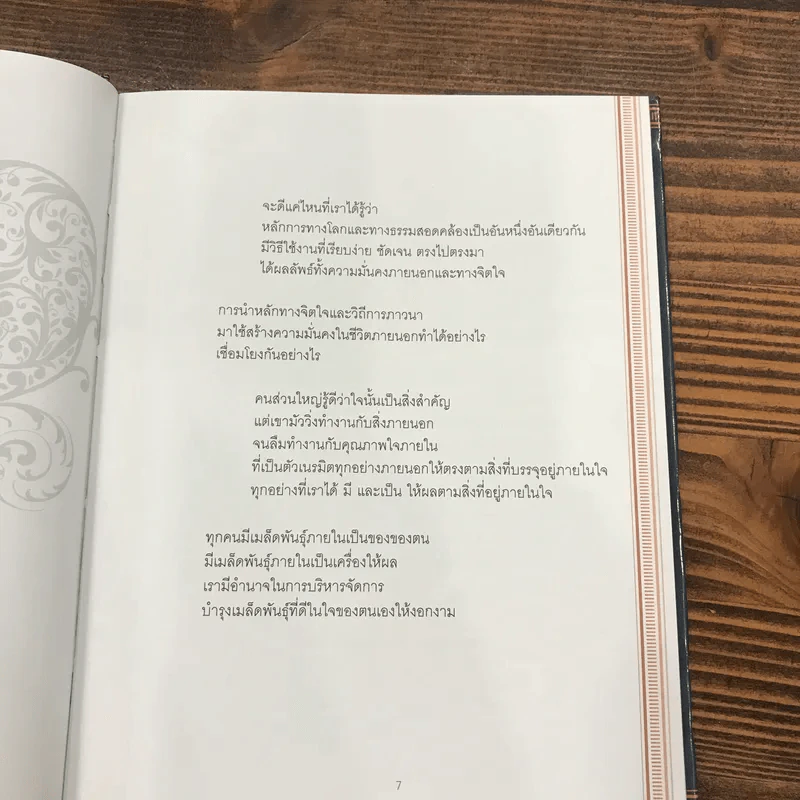 จะดีแค่ไหนที่เราได้รู้ว่า
หลักการทางโลกและทางธรรมสอดคล้องเป็นอันหนึ่งอันเดียวกัน
มีวิธีใช้งานที่เรียบง่าย ชัดเจน ตรงไปตรงมา
ได้ผลลัพธ์ทั้งความมั่นคงภายนอกและทางจิตใจ
การนำหลักทางจิตใจและวิถีการภาวนา
มาใช้สร้างความมั่นคงในชีวิตภายนอกทำได้อย่างไร
เชื่อมโยงกันอย่างไร
คนส่วนใหญ่รู้ดีว่าใจนั้นเป็นสิ่งสำคัญ
แต่เขามัววิ่งทำงานกับสิ่งภายนอก
จนลืมทำงานกับคุณภาพใจภายใน
ที่เป็นตัวเนรมิตทุกอย่างภายนอกให้ตรงตามสิ่งที่บรรจุอยู่ภายในใจ
ทุกอย่างที่เราได้ มี และเป็น ให้ผลตามสิ่งที่อยู่ภายในใจ
ทุกคนมีเมล็ดพันธุ์ภายในเป็นของของตน
มีเมล็ดพันธุ์ภายในเป็นเครื่องให้ผล
เรามีอำนาจในการบริหารจัดการ
บำรุงเมล็ดพันธุ์ที่ดีในใจของตนเองให้งอกงาม
7